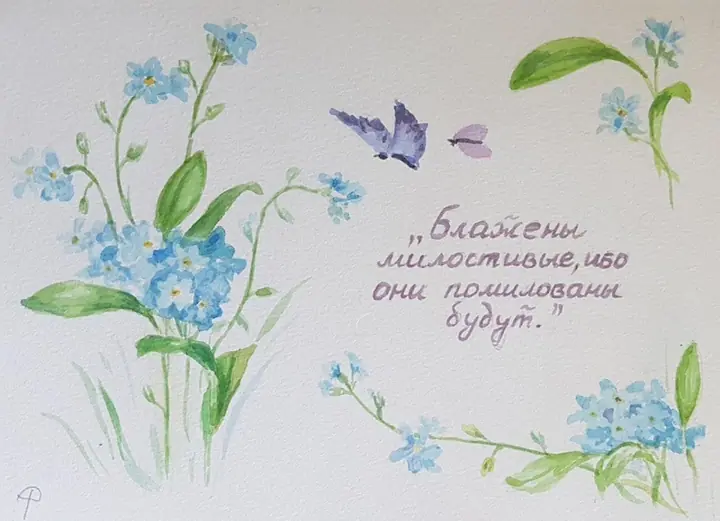 „Блажены
милостивые, ибо
они помилованы
будут.”